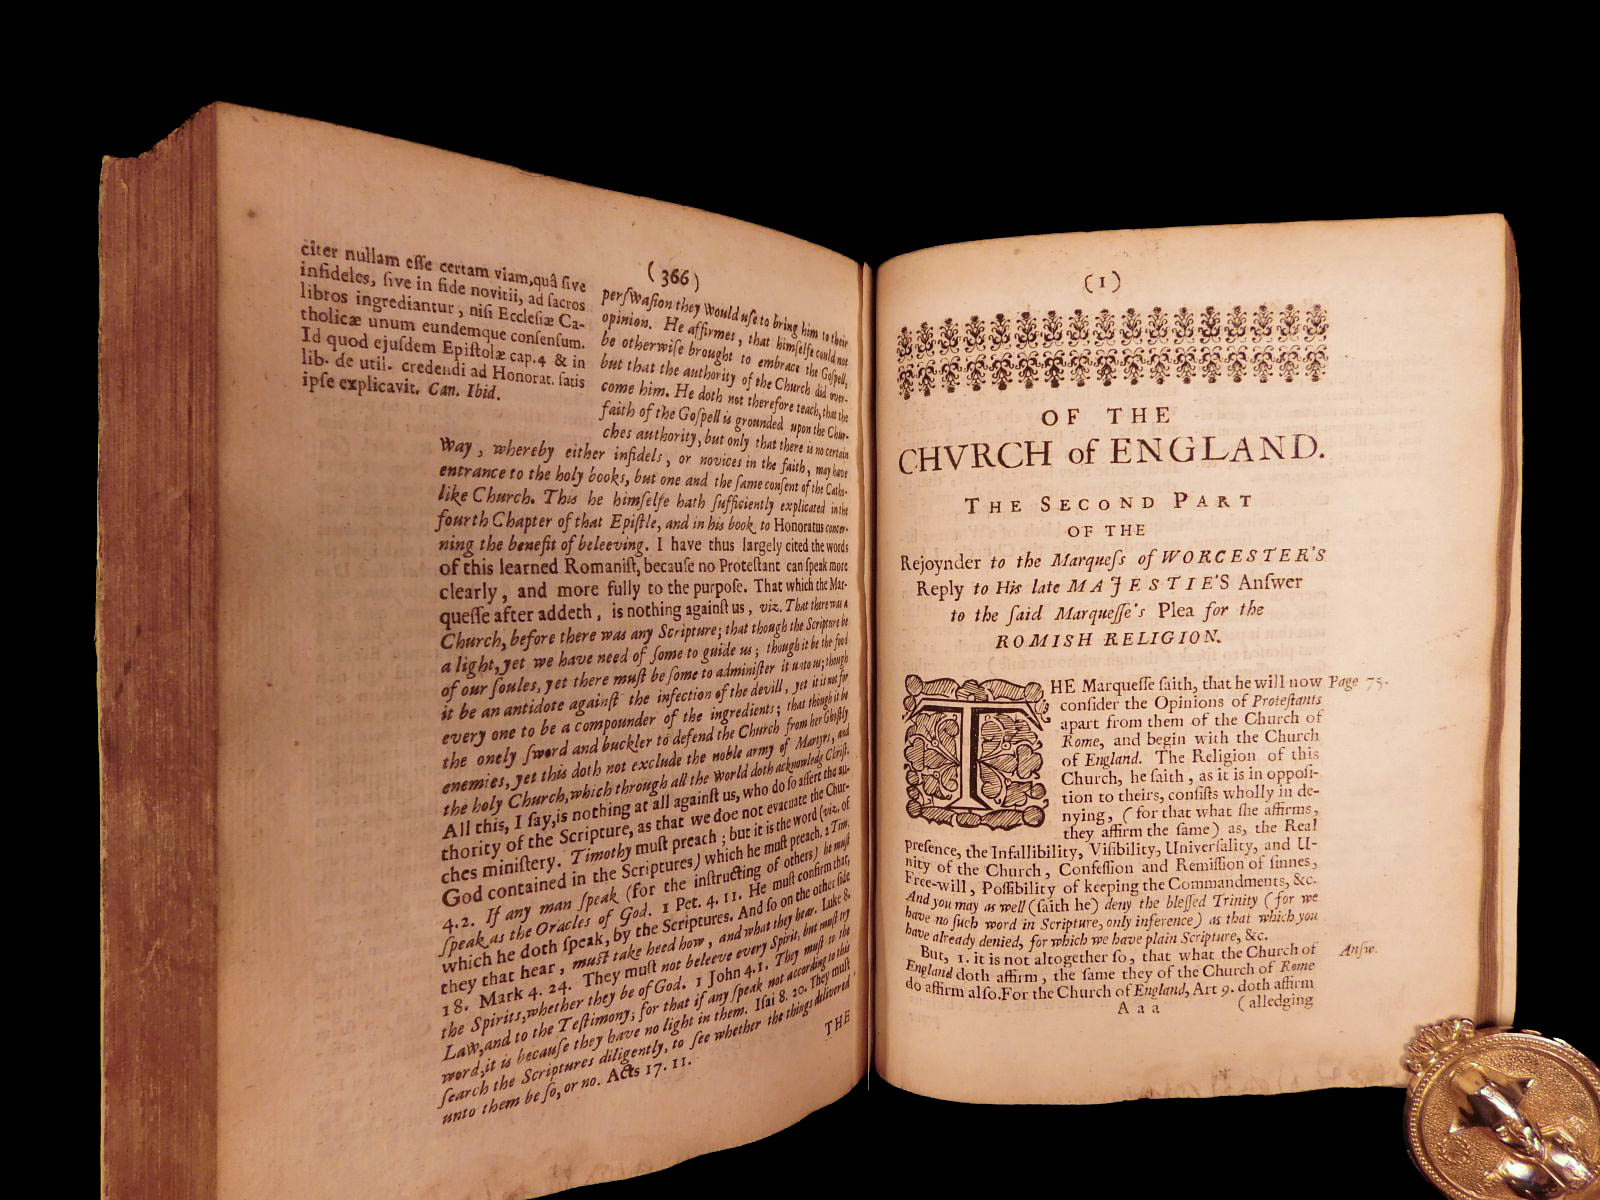 (366)
citer nullam eſſe certam viam,quâ ſive
infideles, ſive in fide novitii, ad ſacros
libros ingrediantur, niſi Eccleſiæ Ca-
tholicæ unum eundemque conſenſum.
Id quod ejuſdem Epiſtolæ cap.4 & in
lib. de util. credendi ad Honorat. ſatis
ipſe explicavit. Can. Ibid.
perſwaſion they would uſe to bring him to their
opinion. He affirmes, that himſelfe could not
be otherwiſe brought to embrace the Goſpell,
but that the authority of the Church did over-
come him. He doth not therefore teach, that the
faith of the Goſpell is grounded upon the Chur-
ches authority, but only that there is no certain
way, whereby either infidels, or novices in the faith, may have
entrance to the holy books, but one and the ſame conſent of the Catho-
like Church. This he himſelfe hath ſufficiently explicated in the
fourth Chapter of that Epiſtle, and in his book to Honoratus concer-
ning the benefit of beleeving. I have thus largely cited the words
of this learned Romaniſt, becauſe no Proteſtant can ſpeak more
clearly, and more fully to the purpoſe. That which the Mar-
queſſe after addeth, is nothing againſt us, viz. That there was a
Church, before there was any Scripture; that though the Scripture be
a light, yet we have need of ſome to guide us; though it be the food
of our ſoules, yet there muſt be ſome to adminiſter it unto us; though
it be an antidote againſt the infection of the devill, yet it is not for
every one to be a compounder of the ingredients; that though it be
the onely ſword and buckler to defend the Church from her Ghoſtly
enemies, yet this doth not exclude the noble army of Martyrs, and
the holy Church, which through all the World doth acknowledg Chriſt.
All this, I ſay,is nothing at all againſt us, who do ſo aſſert the au-
thority of the Scripture, as that we doe not evacuate the Chur-
ches miniſtery. Timothy muſt preach; but it is the word (viz. of
God contained in the Scriptures) which he muſt preach. 2 Tim.
4.2. If any man ſpeak (for the inſtructing of others) he muſt
ſpeak as the Oracles of God. 1 Pet. 4. 11. He muſt confirm that,
which he doth ſpeak, by the Scriptures. And ſo on the other ſide
they that hear, muſt take heed how, and what they hear. Luke 8.
18. Mark 4. 24. They muſt not beleeve every Spirit, but muſt try
the Spirits,whether they be of God. 1 John 4.1. They muſt to the
Law,and to the Teſtimony; for that if any ſpeak not according to this
word,it is becauſe they have no light in them. Iſai 8. 20. They muſt
ſearch the Scriptures diligently, to ſee whether the things delivered
unto them be ſo, or no. Acts 17. 11.
THE
(1)
OF THE
CHVRCH of ENGLAND.
THE SECOND PART
OF THE
Rejoynder to the Marqueſs of WORCESTER'S
Reply to His late MAJESTIE'S Anſwer
to the ſaid Marqueſſe's Plea for the
ROMISH RELIGION.
THE Marqueſſe ſaith, that he will now Page 75.
conſider the Opinions of Proteſtants
apart from them of the Church of
Rome, and begin with the Church
of England. The Religion of this
Church, he ſaith, as it is in oppoſi-
tion to theirs, conſiſts wholly in de-
nying, (for that what ſhe affirms,
they affirm the ſame) as, the Real
preſence, the Infallibility, Viſibility, Univerſality, and U-
nity of the Church, Confeſſion and Remiſſion of ſinnes,
Free-will, Poſſibility of keeping the Commandments, &c.
And you may as well (ſaith he) deny the bleſſed Trinity (for we
have no ſuch word in Scripture, only inference) as that which you
have already denied, for which we have plain Scripture, &c.
But, 1. it is not altogether ſo, that what the Church of Anſw.
England doth affirm, the ſame they of the Church of Rome
do affirm alſo.For the Church of England, Art 9. doth affirm
Aaa (alledging